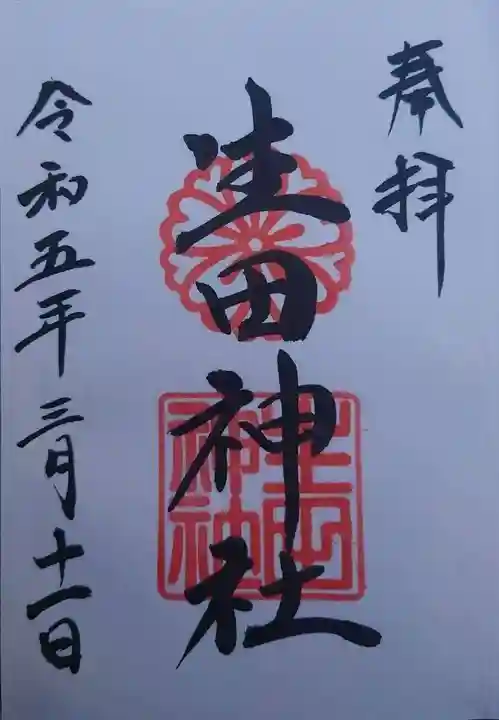 奉拝
生田神社
生田
神社
令和五年三月十一日